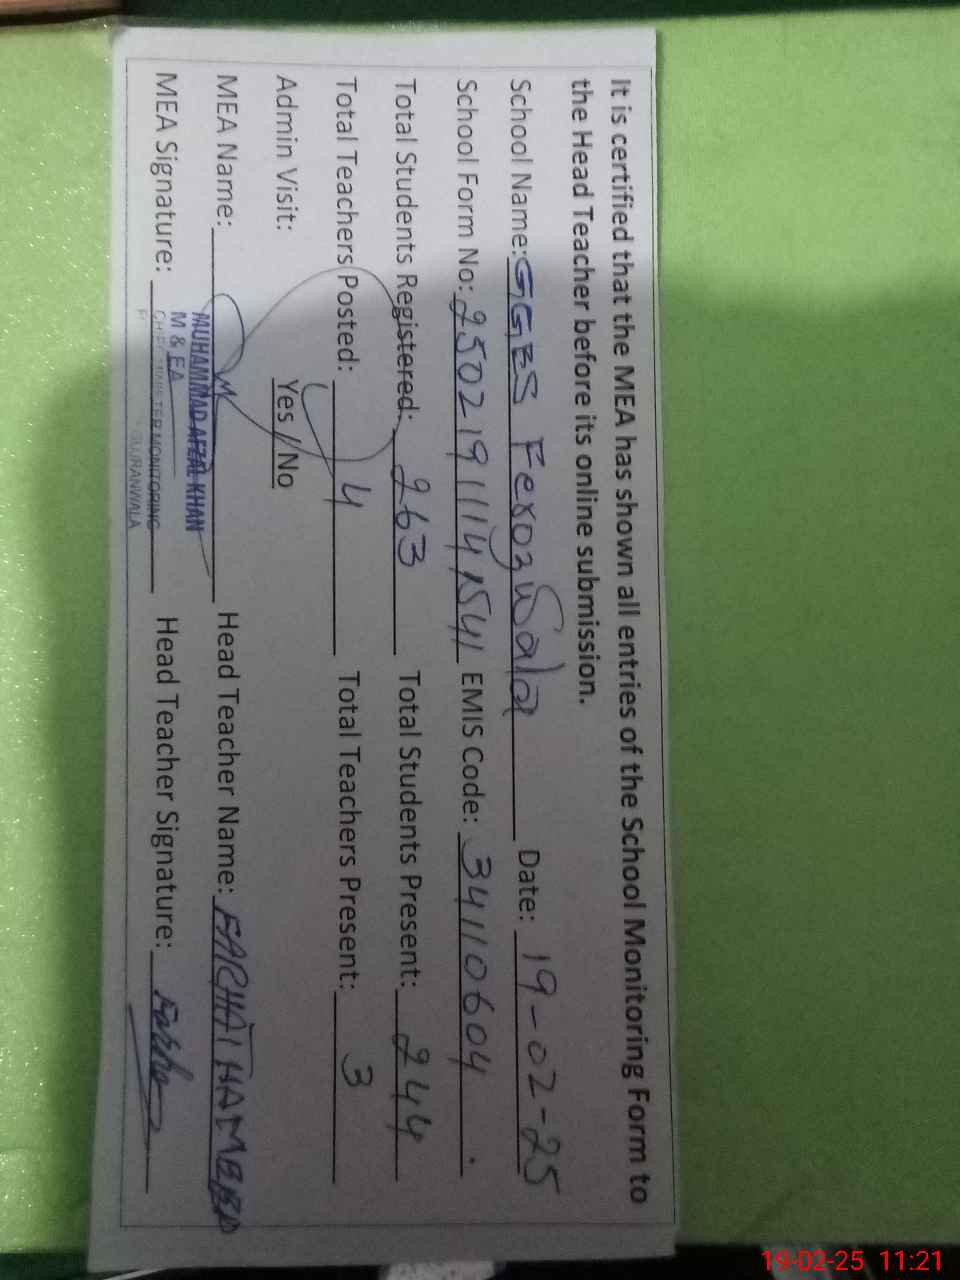 It is certified that the MEA has shown all entries of the School Monitoring Form to
the Head Teacher before its online submission.
School Name: GGES Ferozwala Date: 19-02-25
School Form No: 250219111141541 EMIS Code: 34110604
Total Students Registered: 263 Total Students Present: 244
Total Teachers Posted: 4 Total Teachers Present: 3
Admin Visit: Yes / No
MEA Name: Head Teacher Name: FARHAT HAMEED
MUHAMMAD AFZAL KHAN
MEA Signature: Head Teacher Signature: Farha
M & EA
CHIEF MINISTER MONITORING
GUJRANWALA
19-02-25 11:21